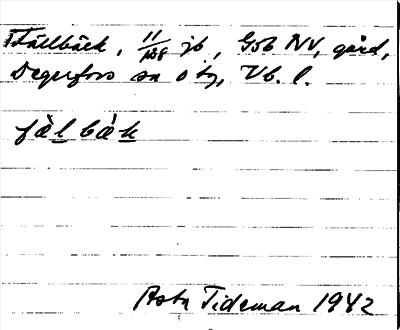 Fällbäck, 11/108 jb, Gob NV, gård,
Degerfors sn o tg, Vb. l.
fä̀l bä̀k
Asta Tideman 1942